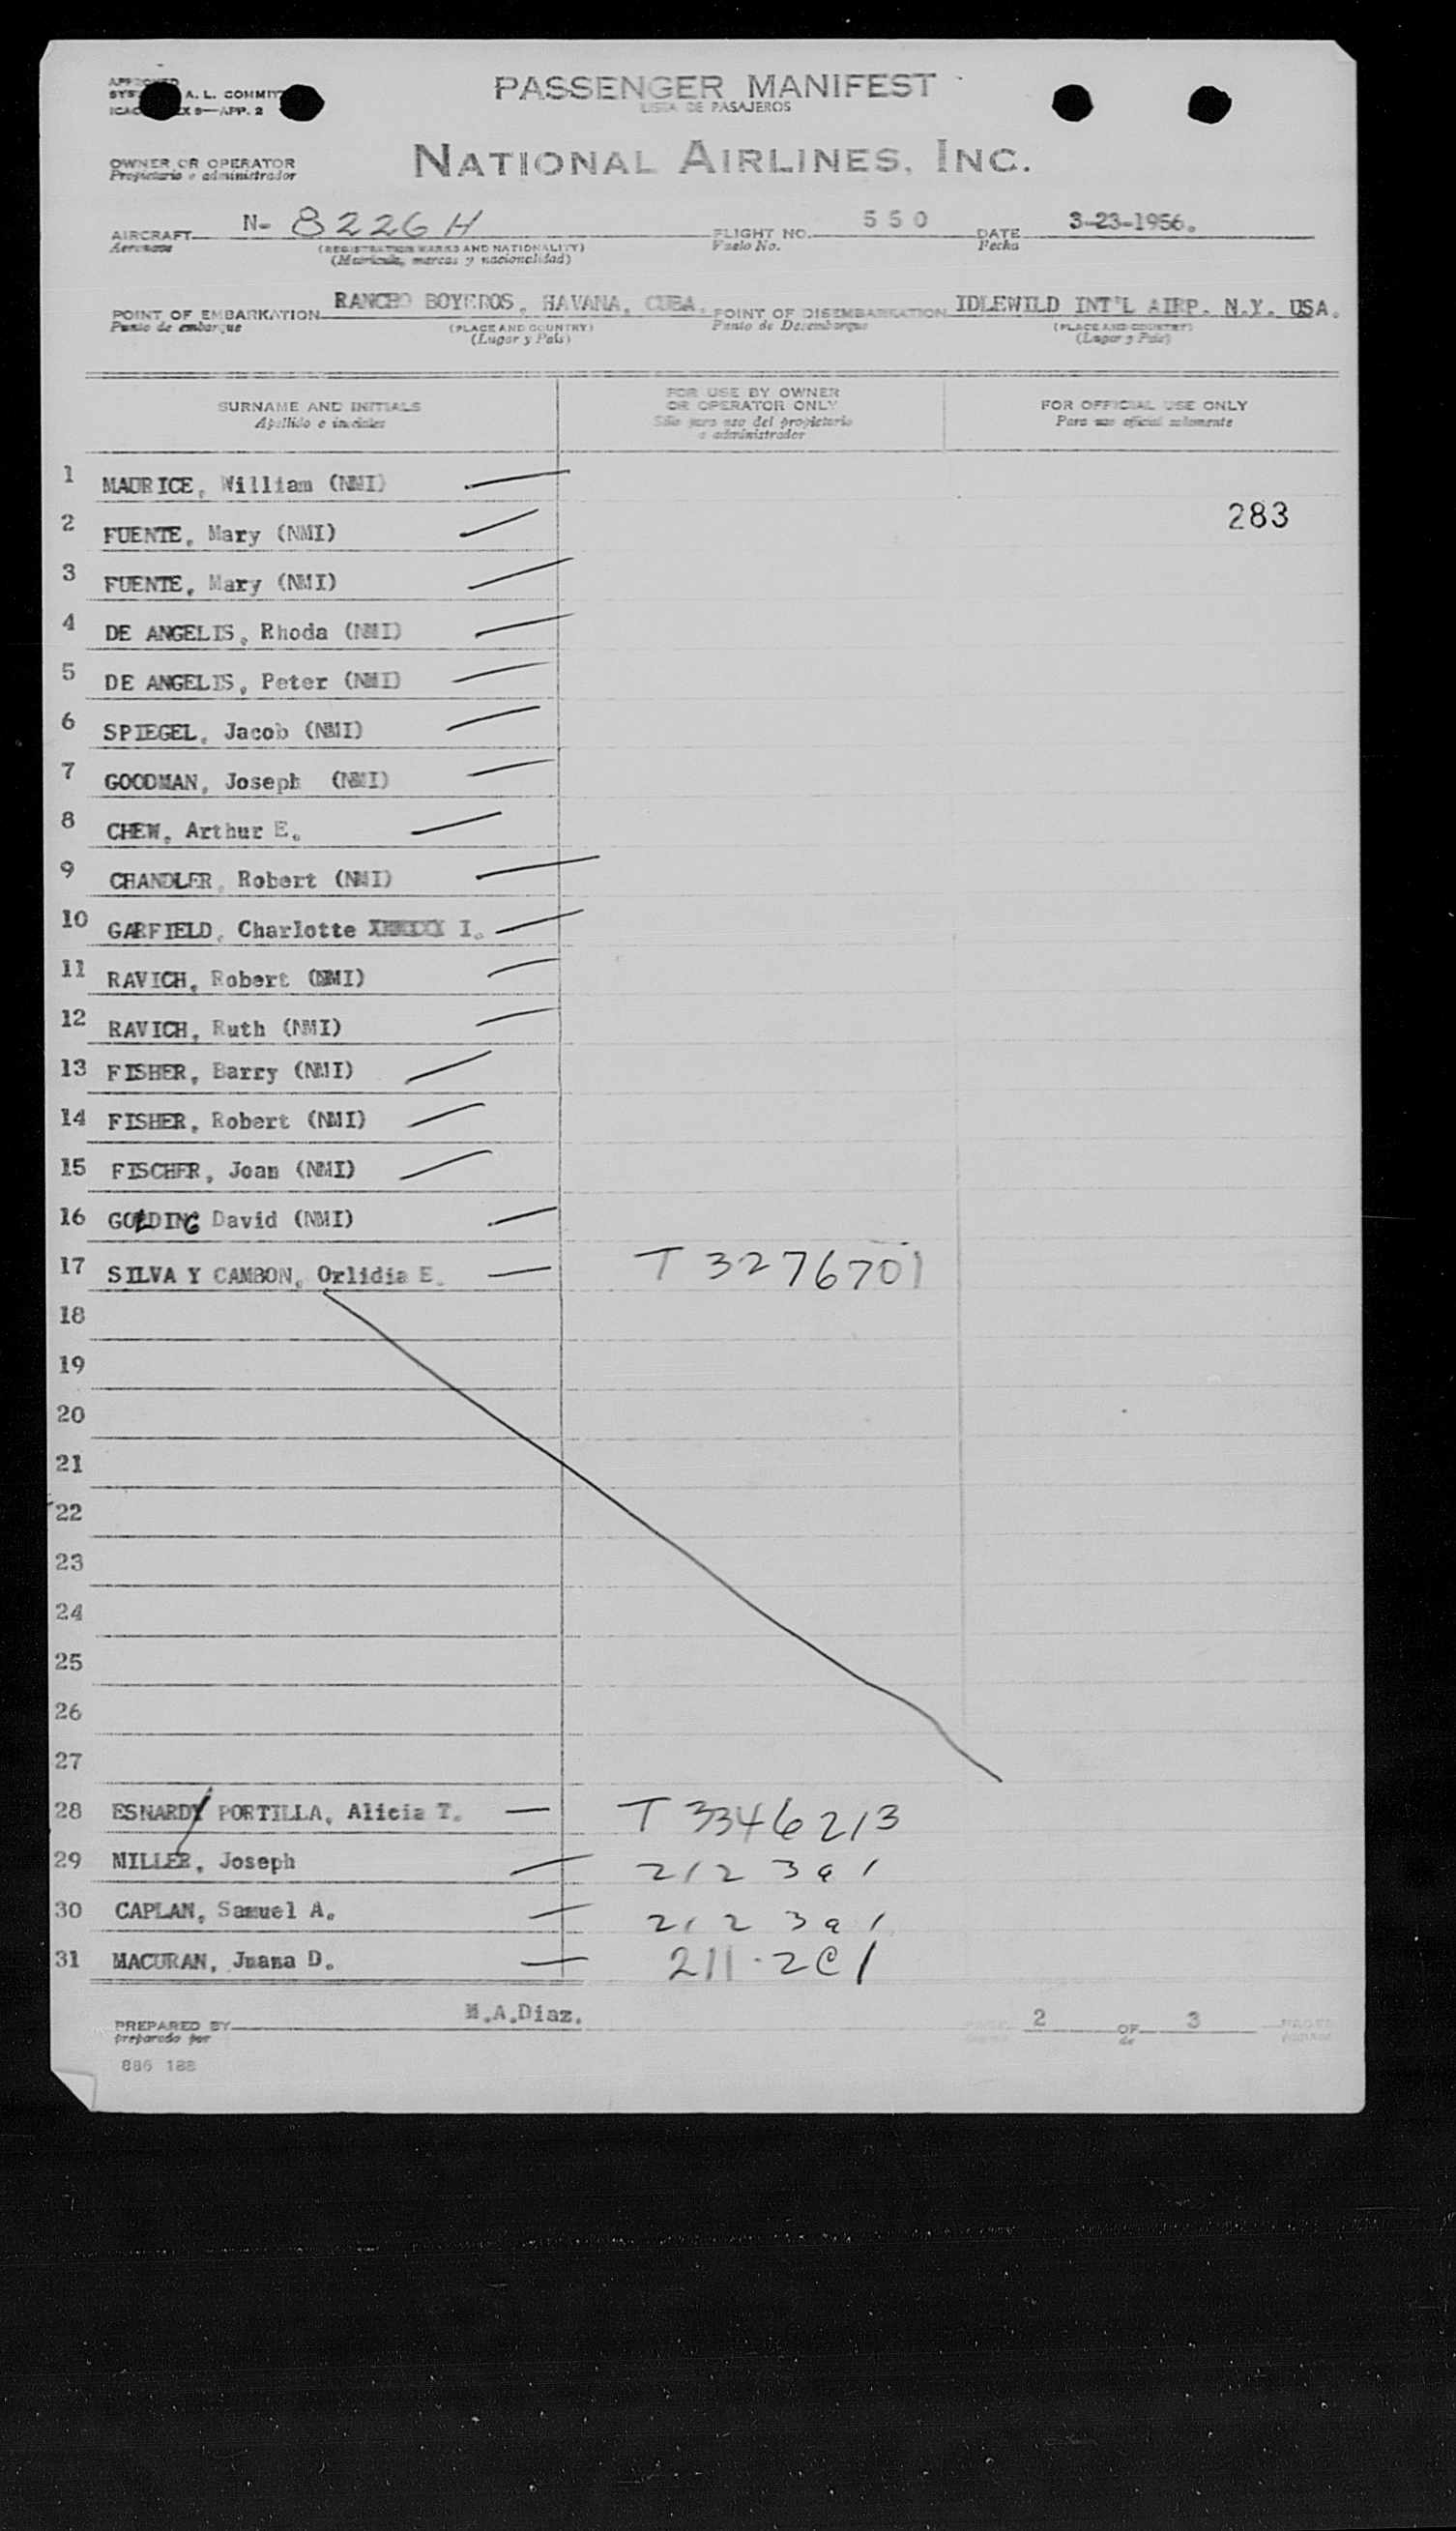 PASSENGER MANIFEST
LISTA DE PASAJEROS
APPROVED
A. L. COMMIT
9—APP. 2
NATIONAL AIRLINES, INC.
OWNER OR OPERATOR
Propietario o administrador
AIRCRAFT N- 8226H FLIGHT NO. 550 DATE 3-23-1956.
Aeronave (REGISTRATION MARKS AND NATIONALITY) Vuelo No. Fecha
(Matricula, marcas y nacionalidad)
POINT OF EMBARKATION RANCHO BOYEROS, HAVANA, CUBA. POINT OF DISEMBARKATION IDLEWILD INT'L AIRP. N.Y. USA.
Punto de embarque (PLACE AND COUNTRY) Punto de Desembarque (PLACE AND COUNTRY)
(Lugar y País) (Lugar y País)
SURNAME AND INITIALS
Apellido e iniciales
FOR USE BY OWNER
OR OPERATOR ONLY
Sólo para uso del propietario
o administrador
FOR OFFICIAL USE ONLY
Para uso oficial solamente
1 MAURICE, William (NMI)
283
2 FUENTE, Mary (NMI)
3 FUENTE, Mary (NMI)
4 DE ANGELIS, Rhoda (NMI)
5 DE ANGELIS, Peter (NMI)
6 SPIEGEL, Jacob (NMI)
7 GOODMAN, Joseph (NMI)
8 CHEW, Arthur E.
9 CHANDLER, Robert (NMI)
10 GARFIELD, Charlotte I.
11 RAVICH, Robert (NMI)
12 RAVICH, Ruth (NMI)
13 FISHER, Barry (NMI)
14 FISHER, Robert (NMI)
15 FISCHER, Joan (NMI)
16 GOLDING David (NMI)
17 SILVA Y CAMBON, Orlidia E. T 3276701
18
19
20
21
22
23
24
25
26
27
28 ESNARDY PORTILLA, Alicia T. T 3346213
29 MILLER, Joseph 212 3a1
30 CAPLAN, Samuel A. 212 3a1
31 MACURAN, Juana D. 211-2C1
PREPARED BY M.A.Diaz. PAGE 2 OF 3 PAGES
preparado por de
886 188